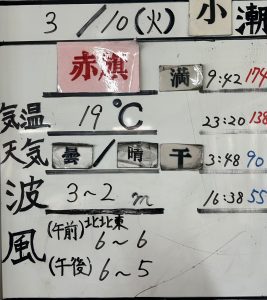 3/10(火) 小潮
赤旗 満 9:42 174
23:20 138
気温 19℃
天気 曇/晴 干 3:48 90
波 3~2 m 16:38 55
風 (午前) 北北東 6~6
(午後) 6~5